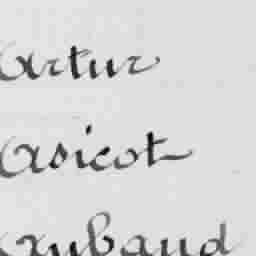 Artur
Asicot
Aubaud